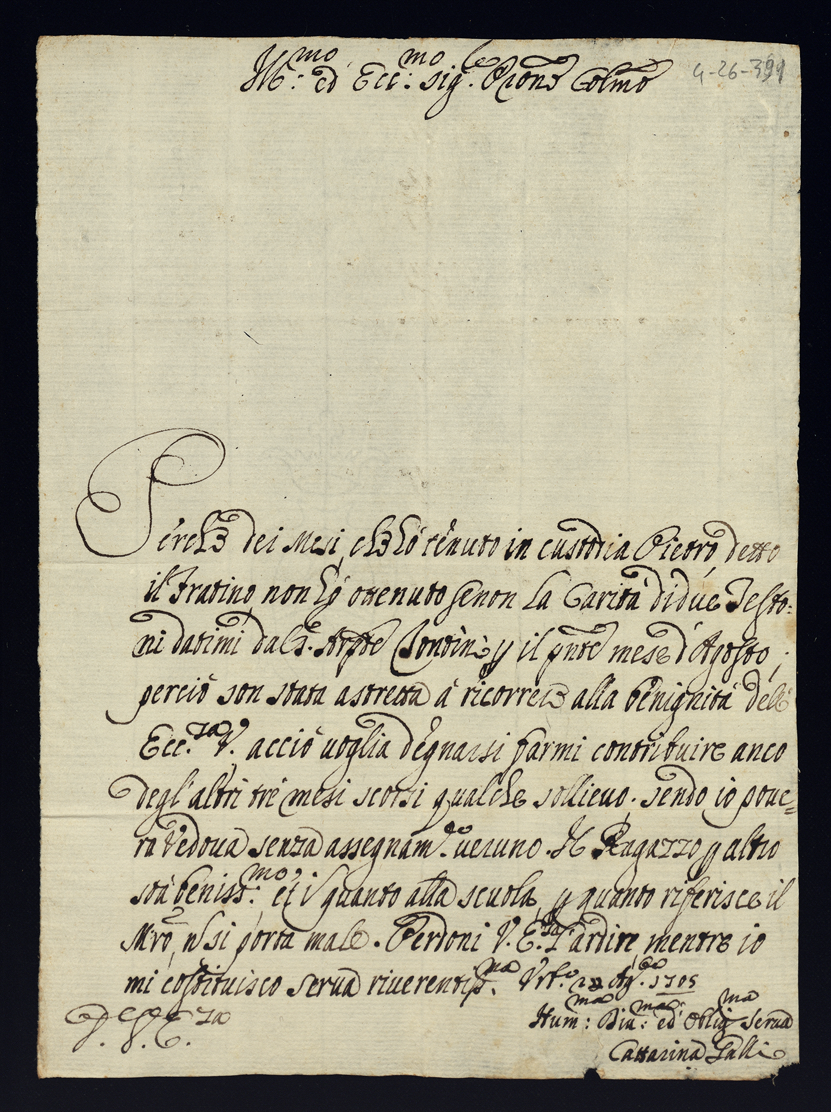 Ill:mo ed Ecc:mo sig:le Prone Colmo
4-26-391
Perche dei Mesi, che hò tenuto in custodia Pietro detto
il Fratino, non hò ottenuto senon la Carità di due Testo=
ni datimi dal S. Contini p il pnte mese d'Agosto,
perciò son stata astretta à ricorrere alla benignità dell'
Ecc.za V. acciò voglia degnarsi farmi contribuire anco
degl'altri trè mesi scorsi qualche sollievo. sendo io pove=
ra Vedova senza assegnam.to veruno. Il Ragazzo p altro
stà beniss.mo, et i quanto alla scuola, p quanto riferisce il
Mro, n si porta male. Perdoni V. E.za l'ardire, mentre io
mi costituisco serva riverentis.ma Urb.o Ag.to 1705
D. V. E.za
Hum:ma Div:ma: ed Oblig.ma Serva
Cattarina Galli